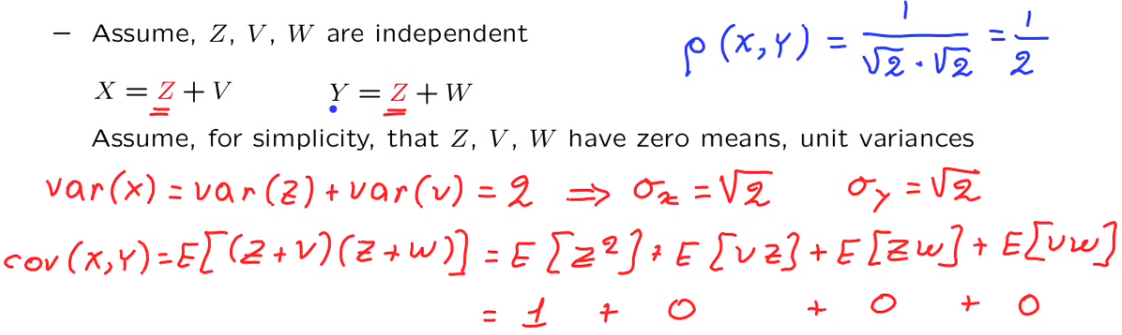 – Assume, Z, V, W are independent
ρ(X,Y) = 1/(√2 · √2) = 1/2
X = Z + V    Y = Z + W
Assume, for simplicity, that Z, V, W have zero means, unit variances
var(x) = var(z) + var(v) = 2 ⇒ σx = √2    σy = √2
cov(X,Y) = E[(Z+V)(Z+W)] = E[Z²] + E[VZ] + E[ZW] + E[VW]
= 1 + 0 + 0 + 0